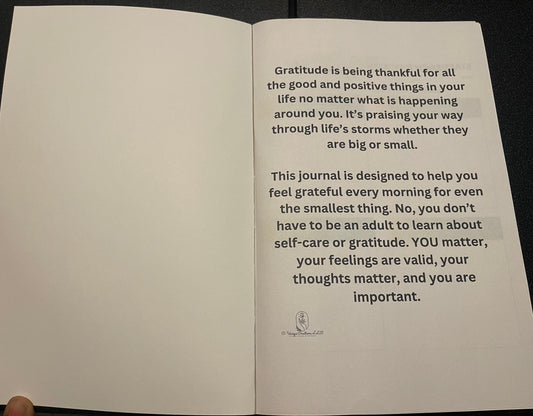 Gratitude is being thankful for all
the good and positive things in your
life no matter what is happening
around you. It's praising your way
through life's storms whether they
are big or small.
This journal is designed to help you
feel grateful every morning for even
the smallest thing. No, you don't
have to be an adult to learn about
self-care or gratitude. YOU matter,
your feelings are valid, your
thoughts matter, and you are
important.